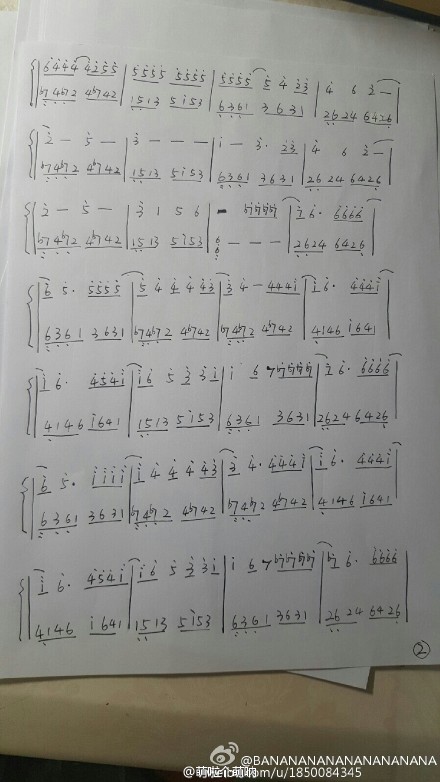 6444 4255 | 5555 5555 | 5555 5 4 33 | 4 6 2 —
b74b72 4b742 | 1513 5i53 | 6361 3631 | 2624 6426
2 — 5 — | 3 — — — | i — 3· 23 | 4 6 2 —
b74b72 4b742 | 1513 5i53 | 6361 3631 | 2624 6426
2 — 5 — | 3 1 5 6 | — b7b7b7b7 | 1 6· 6666
b74b72 4b742 | 1513 5i53 | 6 — — — | 2624 6426
6 5· 5555 | 5 4 4 4 43 | 3 4 — 444i | i 6· 444i
6361 3631 | b74b72 4b742 | b74b72 4b742 | 4146 i641
i 6· 454i | i6 5 3 3i | i 6 7b7b7b7b7 | i 6· 6666
4146 i641 | 1513 5i53 | 6361 3631 | 2624 6426
6 5· iiii | i 4 4 4 43 | 3 4· 444i | i 6· 444i
6361 3631 | b74b72 4b742 | b74b72 4b742 | 4146 i641
i 6· 454i | i6 5 3 3i | i 6 7b7b7b7b7 | b7 6· 6666
4146 i641 | 1513 5i53 | 6361 3631 | 2624 6426
②
@BANANANANANANANANANA
@萌啦个萌呐
weibo.com/u/1850084345